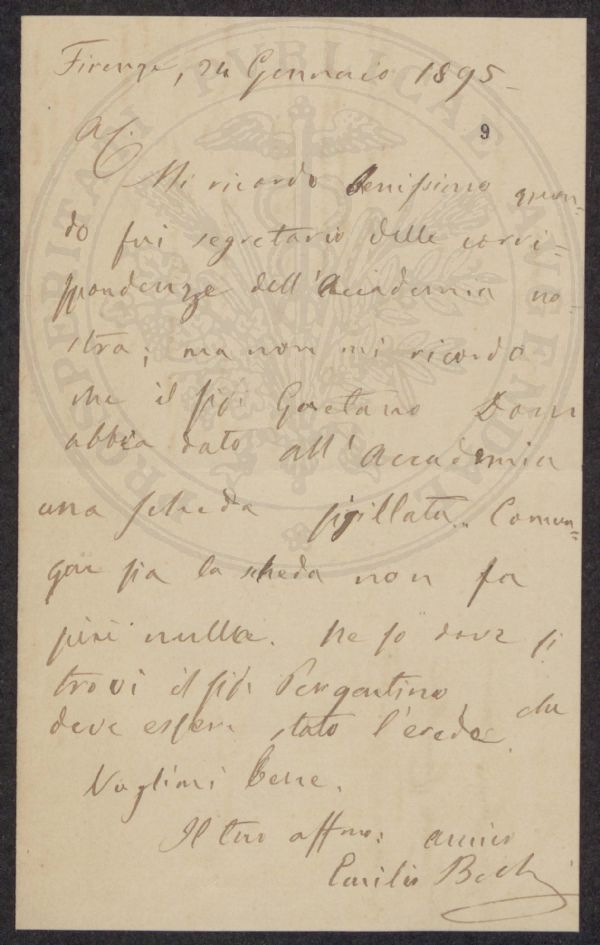 Firenze, 24 Gennaio 1895
9
A. C.
Mi ricordo benissimo quan=
do fui segretario delle corri=
spondenze dell'Accademia no=
stra; ma non mi ricordo
che il sigr Gaetano Doni
abbia dato all'Accademia
una scheda sigillata. Comun=
que sia la scheda non fa
più nulla. Nè so dove si
trovi il sigr Pergentino che
deve essere stato l'erede.
Vogliimi bene.
Il tuo affmo: amico
Emilio Bechi
PROSPERITATI PUBLICAE AUGENDAE